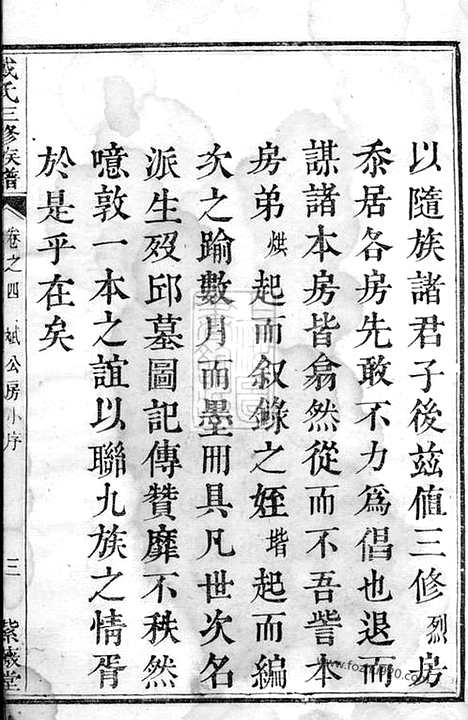 以隨族諸君子後茲值三修烈房
忝居各房先敢不力爲倡也退而
謀諸本房皆翕然從而不吾訾本
房弟烘起而叙錄之姪堦起而編
次之踰數月而墨冊具凡世次名
派生歿邱墓圖記傳贊靡不秩然
噫敦一本之誼以聯九族之情胥
於是乎在矣
氏三修族譜
卷之四 斌公房小序 三 紫羲堂